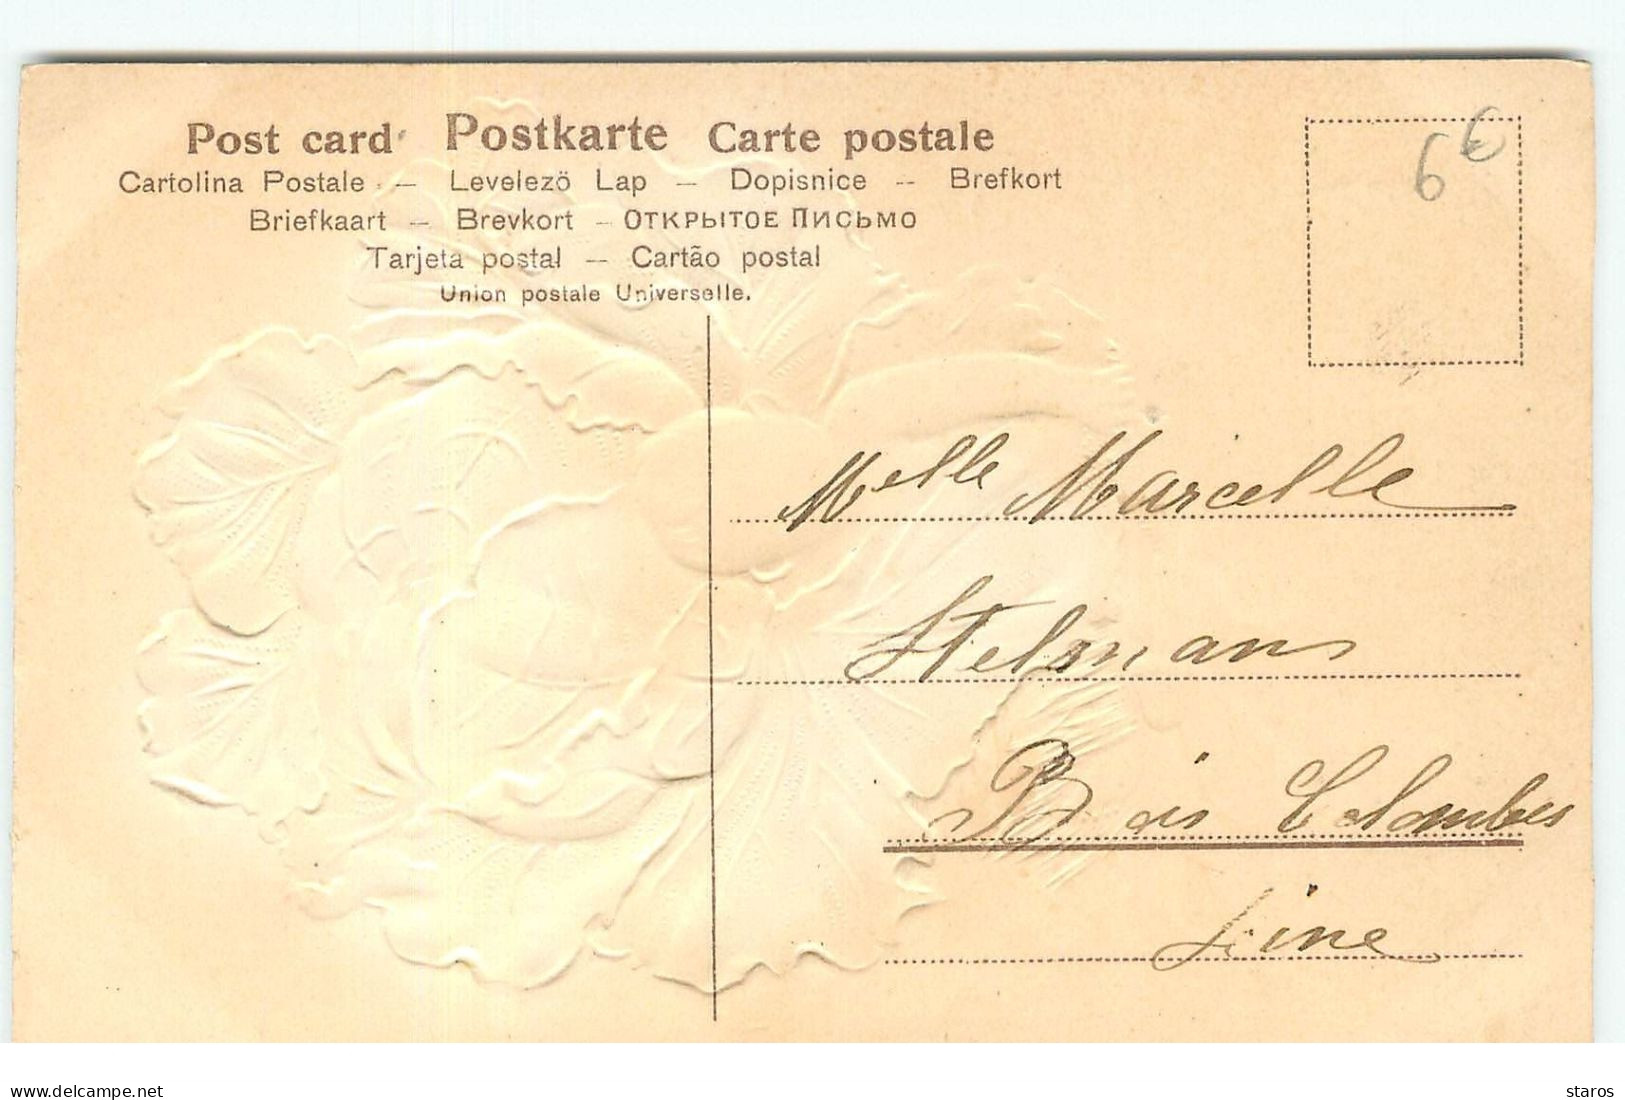 Post card Postkarte Carte postale
Cartolina Postale — Levelező Lap — Dopisnice -- Brefkort
Briefkaart — Brevkort — Открытое Письмо
Tarjeta postal — Cartão postal
Union postale Universelle.
6€
Melle Marcelle
Stelmans
Bois Colombes
Seine
delcampe.net
staros